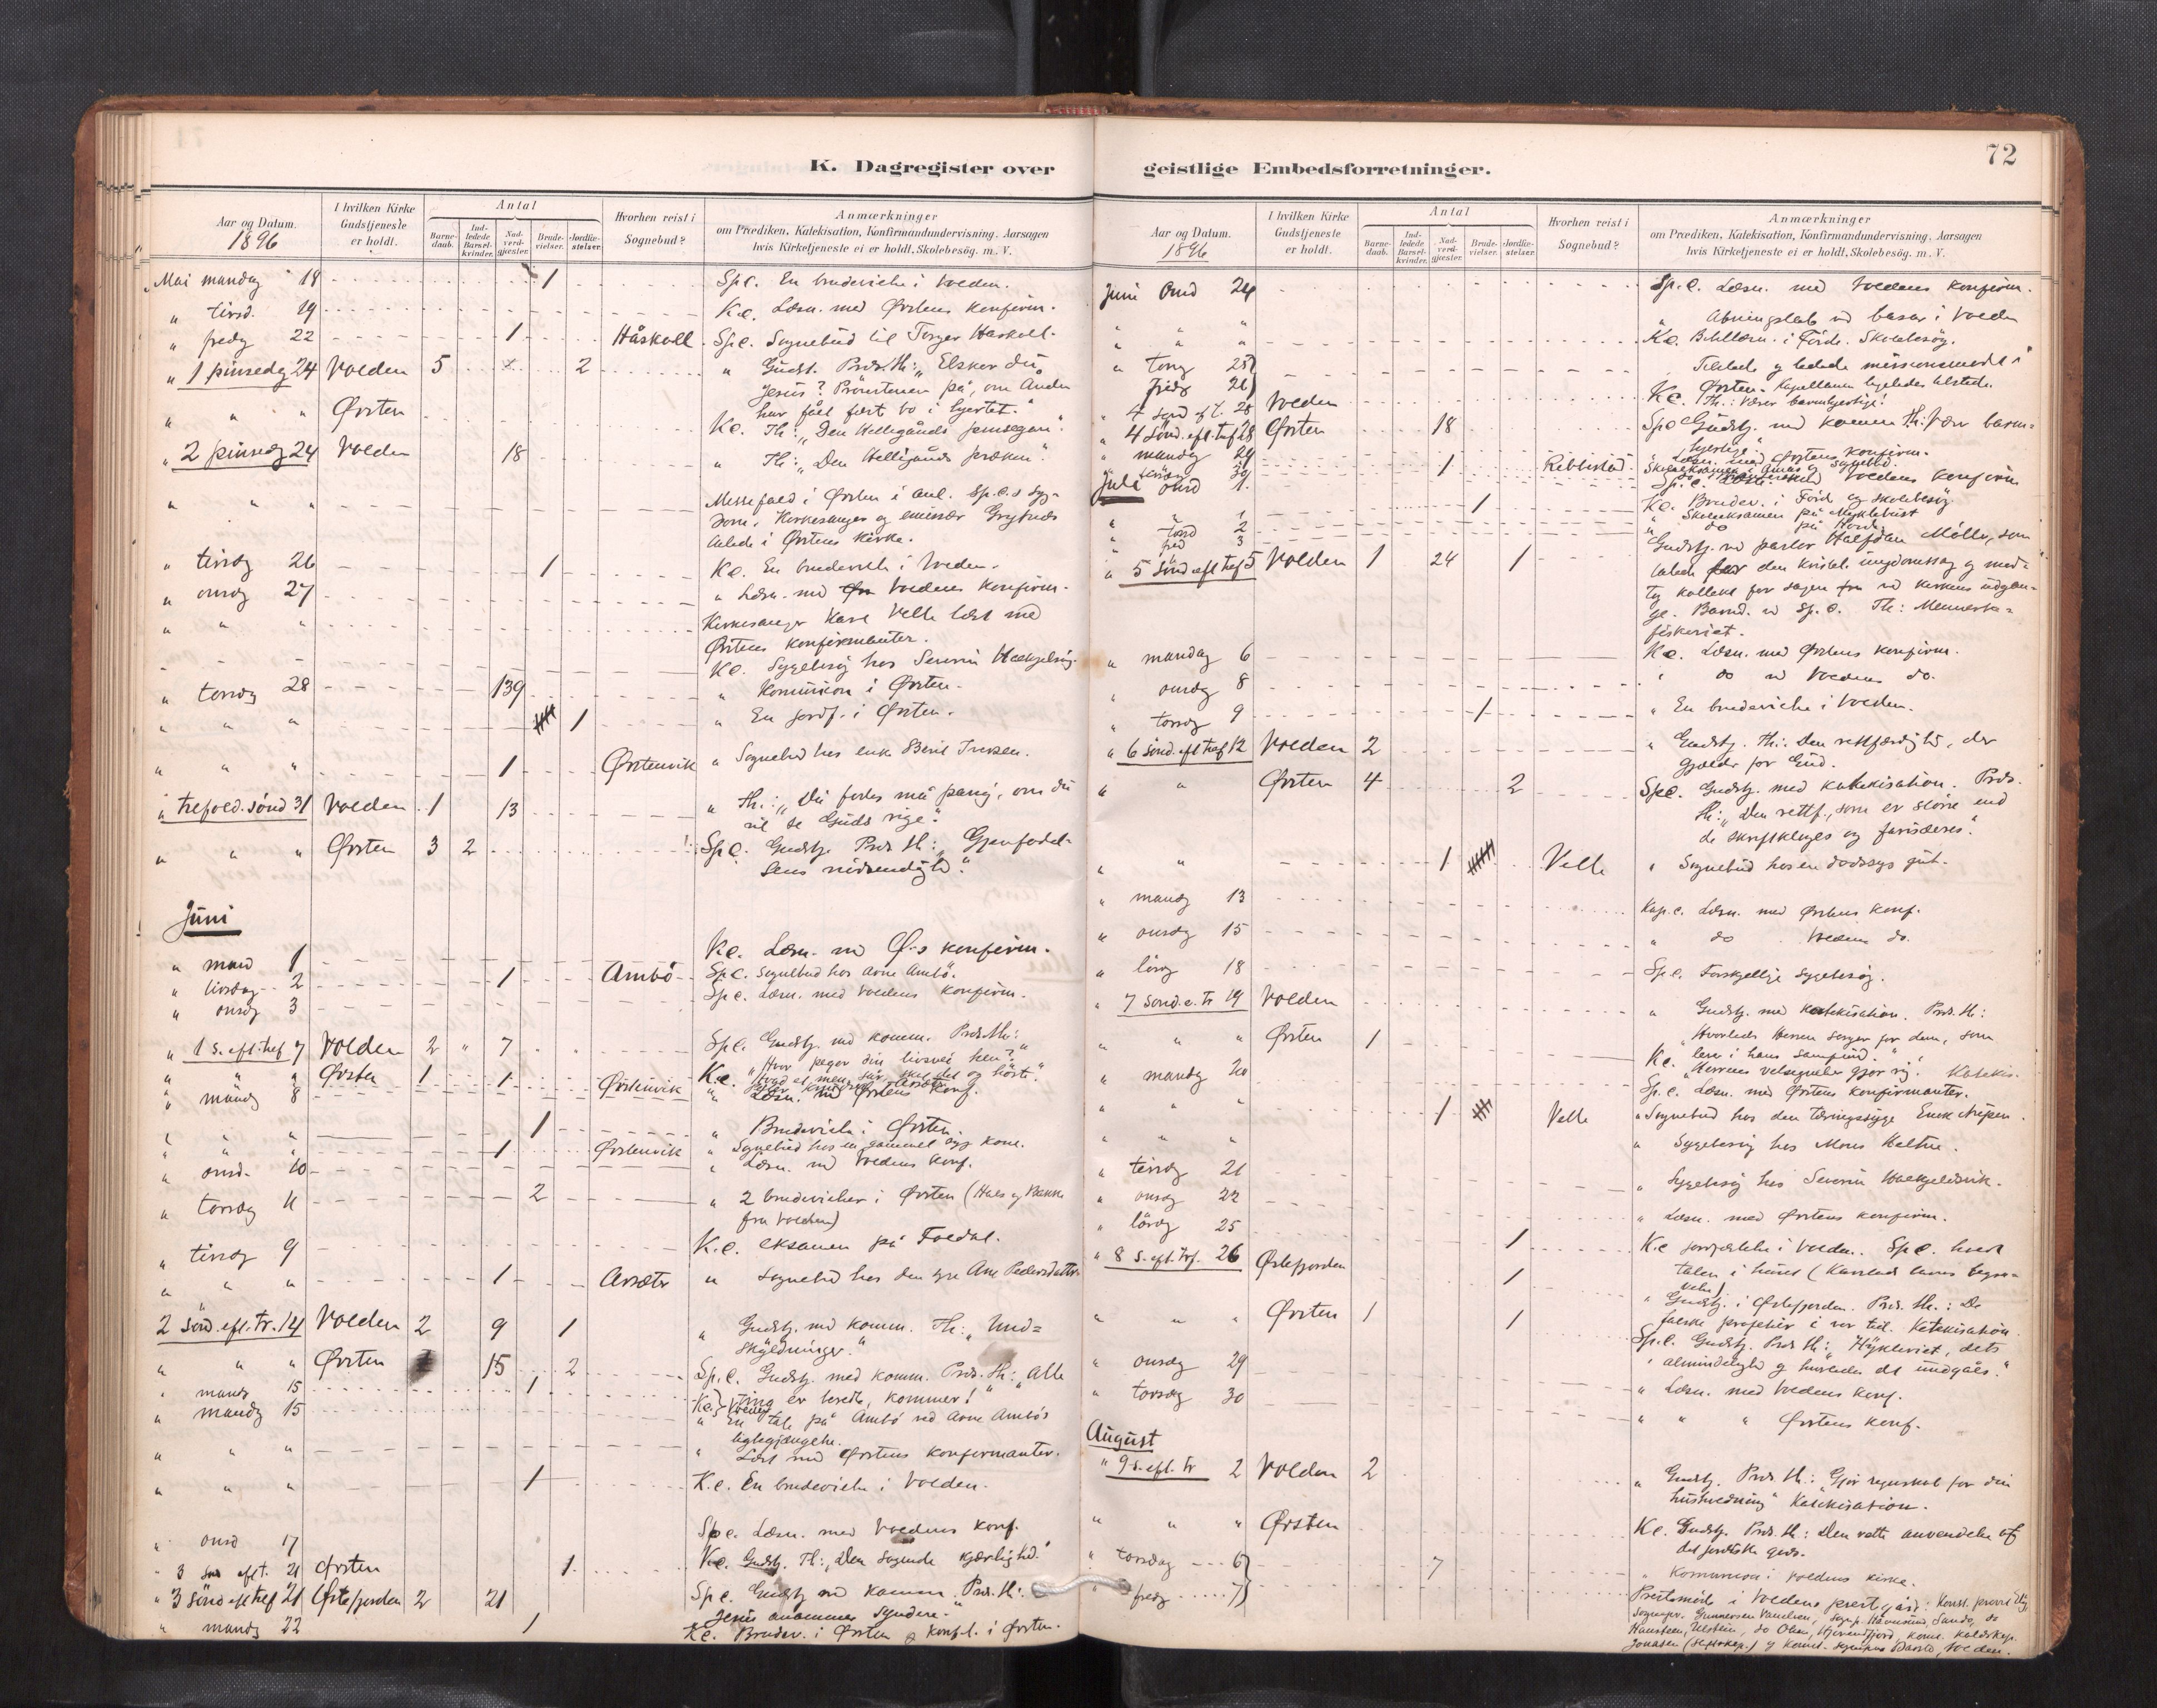 K. Dagregister over
Aar og Datum.
1896
I hvilken Kirke
Gudstjeneste
er holdt.
Antal
Barne-
daab.
Ind-
ledede
Barsel-
kvinder.
Nad-
verd-
gjæster.
Brude-
vielser.
Jordfæ-
stelser.
Hvorhen reist i
Sognebud?
Anmærkninger
om Prædiken, Katekisation, Konfirmandundervisning, Aarsagen
hvis Kirketjeneste ei er holdt, Skolebesög. m. V.
Mai mandag 18 1 Sp.e. En brudevielse i Volden.
" tirsd. 19 K.e. Læsn. med Ørstens konfirm.
" fredg 22 1 Håskoll Sp.e. Sognebud til Torger Haskoll.
" 1 pinsedg 24 Volden 5 2 " Gudst. Præd. th: "Elsker du
Jesus? Prøvestenen på, om Anden
har fået fært bo i hjertet."
" " " Ørsten K.e. Th: "Den Helligånds pinsegave."
" 2 pinsedg 24 Volden 18 " Th: "Den Helligånds præken"
" " " Messefald i Ørsten i anl. Sp.e.s syg-
dom. Kirkesanger og emissær
talede i Ørstens kirke.
" tirsdg 26 1 K.e. En brudevielse i Volden.
" onsdg 27 " Læsn. med Voldens konfirm.
" " " Kirkesanger Kare Velle læst med
Ørstens konfirmanter.
K.e. Sygebesøg hos Severin
" torsdg 28 139 " Kommunion i Ørsten.
" " " 1 " En jordf. i Ørsten.
" " " 1 Ørstenvik " Sognebud hos enke Berit Iversen.
" trefold. sönd 31 Volden 1 13 " Th: "Du fødes må påny, om du
vil se Guds rige."
" " " Ørsten 3 2 Sp.e. Gudstj. Præd. th: "Gjenfødel-
sens nödvendighed."
Juni
" mand 1 K.e. Læsn. med Ø-s konfirm.
" tirsdag 2 1 Ambö Sp.e. Sognebud hos Arne Ambö.
" onsdg 3 Sp.e. Læsn. med Voldens konfirm.
" 1 s. eft. tref 7 Volden 2 " 7 Sp.e. Gudstj. med komm. Præd. th:
"Hvor peger din livsvei hen?"
" " " Ørsten 1 1 Ørstenvik K.e. "Hvad et menn. sår, skal det og höste."
" mandg 8 " Læsn. med Ørstens konf.
" " " 1 " Brudevielse i Ørsten.
" " " 1 Ørstenvik " Sognebud hos en gammel syg kone.
" onsd. 10 " Læsn. med Voldens konf.
" torsdg 11 2 " 2 brudevielser i Ørsten (Haes og Bakke
fra Volden)
" tirsdg 9 K.e. eksamen på Foldal.
" " " 1 Årsætr " Sognebud hos den syge Ane Pedersdatter
2 sönd. eft. tr. 14 Volden 2 9 1 " Gudstj. med komm. Th: "Und=
skyldninger."
" " " Ørsten 15 2 Sp.e. Gudstj. med komm. Præd. th: "Alle
" mandg 15 1 ting er beredt, kommer!"
" mandg 15 " En tale på Ambö ved Arne Ambös
ligbegjængelse.
" " " " Læst med Ørstens konfirmanter.
" " " 1 K.e. En brudevielse i Volden.
" onsd 17 Sp.e. Læsn. med Voldens konf.
" 3 eft. 21 Ørsten 1 K.e. Gudstj. Th: "Den søgende kjærlighed."
" 3 sönd eft tref 21 Østefjorden 2 21 Sp.e. Gudstj. med komm. Præd. th:
Jesus annammer syndere."
" mandg 22 1 K.e. Brudev. i Ørsten og konf.l. i Ørsten.
72
geistlige Embedsforretninger.
Aar og Datum.
1896
I hvilken Kirke
Gudstjeneste
er holdt.
Antal
Barne-
daab.
Ind-
ledede
Barsel-
kvinder.
Nad-
verd-
gjæster.
Brude-
vielser.
Jordfæ-
stelser.
Hvorhen reist i
Sognebud?
Anmærkninger
om Prædiken, Katekisation, Konfirmandundervisning, Aarsagen
hvis Kirketjeneste ei er holdt, Skolebesög. m. V.
Juni Onsd 24 Sp.e. Læsn. med Voldens konfirm.
" " " " Åbningstale ved basar i Volden
" " " K.e. Bibellæsn. i Förde. Skolebesög.
" torsg 25 Tilstede og ledede missionsmødet i
fredg 26 Ørsten. Kapellanen ligeledes tilstede.
" 4 sönd ef t. 28 Volden K.e. Th: Værer barmhjertige!
" 4 sönd. eft. tref 28 Ørsten 18 Sp.e. Gudstj. med komm. Th: Vær barm=
hjertige"
" mandg 29 " Læsn. med Ørstens konfirm.
" tirsdg 30 1 Rebbestad
Juli onsd 1. Sp.e. Læsn. med Voldens konfirm
" " 1 1 K.e. Brudev. i Förde og skolebesög
" torsd 2 " Skoleeksamen på Myklebust
" fred 3 " do på Hovde.
" 5 sönd eft tref 5 Volden 1 24 1 Gudstj. ved pastor Halfdan Möller, som
talede for den kristel. ungdomssag og med=
tog kollekt for sagen ved kirkens udgan-
ge. Barnd. ved Sp.e. Th: Menneske=
fiskeriet.
" mandag 6 K.e. Læsn. med Ørstens konfirm.
" onsdg 8 " do med Voldens do.
" torsdg 9 1 " En brudevielse i Volden.
" 6 sönd. eft tref 12 Volden 2 " Gudstj. Th: Den retfærdighed, der
gjælder for Gud.
" " Ørsten 4 2 Sp.e. Gudstj. med katekisation. Præd.
th: "Den retf., som er större end
de skriftkloges og farisæeres."
" " 1 Velle " Sognebud hos en dödssyg gut.
" mandg 13 Kap.e. Læsn. med Ørstens konf.
" onsdg 15 " do Voldens do.
" lördg 18 Sp.e. Forskjellige sygebesög.
" 7 sönd. e. tr 19 Volden " Gudstj. med katekisation. Præd. th:
"Hvorledes Herren sörger for dem, som
lever i hans samfund."
" " " Ørsten 1 K.e. "Herrens velsignelse gjör rig." Katekis.
" mandg 20 Sp.e. Læsn. med Ørstens konfirmanter.
" " " 1 Velle " Sognebud hos den tæringssyge
" " " " Sygebesög hos Mons
" tirsdg 21 " Sygebesög hos Severin
" onsdg 22 " Læsn. med Ørstens konfirm.
" lördg 25 1 K.e jordfæstelse i Volden. Sp.e. holdt
talen i huset
" 8 s. eft. trf. 26 Østefjorden 1 " Gudstj. i Østefjorden. Præd. th.: De
falske profeter i vor tid. Katekisation.
" " " Ørsten 1 1 Sp.e. Gudstj. Præd. th: "Hykleriet, dets
almindelighed og hvorledes det undgåes."
" onsdg 29 " Læsn. med Voldens konf.
" torsdg 30 " " " Ørstens konf.
August
" 9 s. eft. tr 2 Volden 2 " Gudstj. Præd. th.: "Gjør regnskab for din
husholdning" Katekisation.
" " " Ørsten K.e. Gudstj. Præd. th: Den rette anvendelse af
det jordiske gods.
" torsdag 6 7 " Kommunion i Voldens kirke.
" fredg 7 Prestemöde i Voldens prestegård: Konst. provst
Sognepr. Gunnersen Vanelven, sognp. Sande, do
Hanssen, Ulstein, do Olsen, Hjørendfjord, konst. kaldskap.
Jonassen og konst. sognepr Volden.